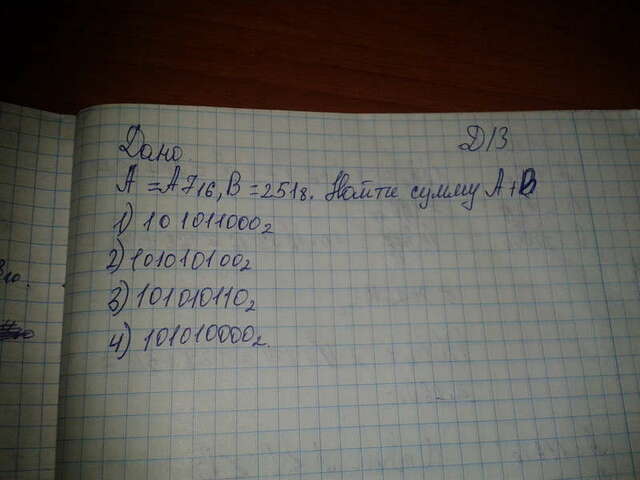 Д/З
Дано
A = A7₁₆, B = 251₈. Найти сумму A+B
1) 101011000₂
2) 101010100₂
3) 101010110₂
4) 101010000₂.